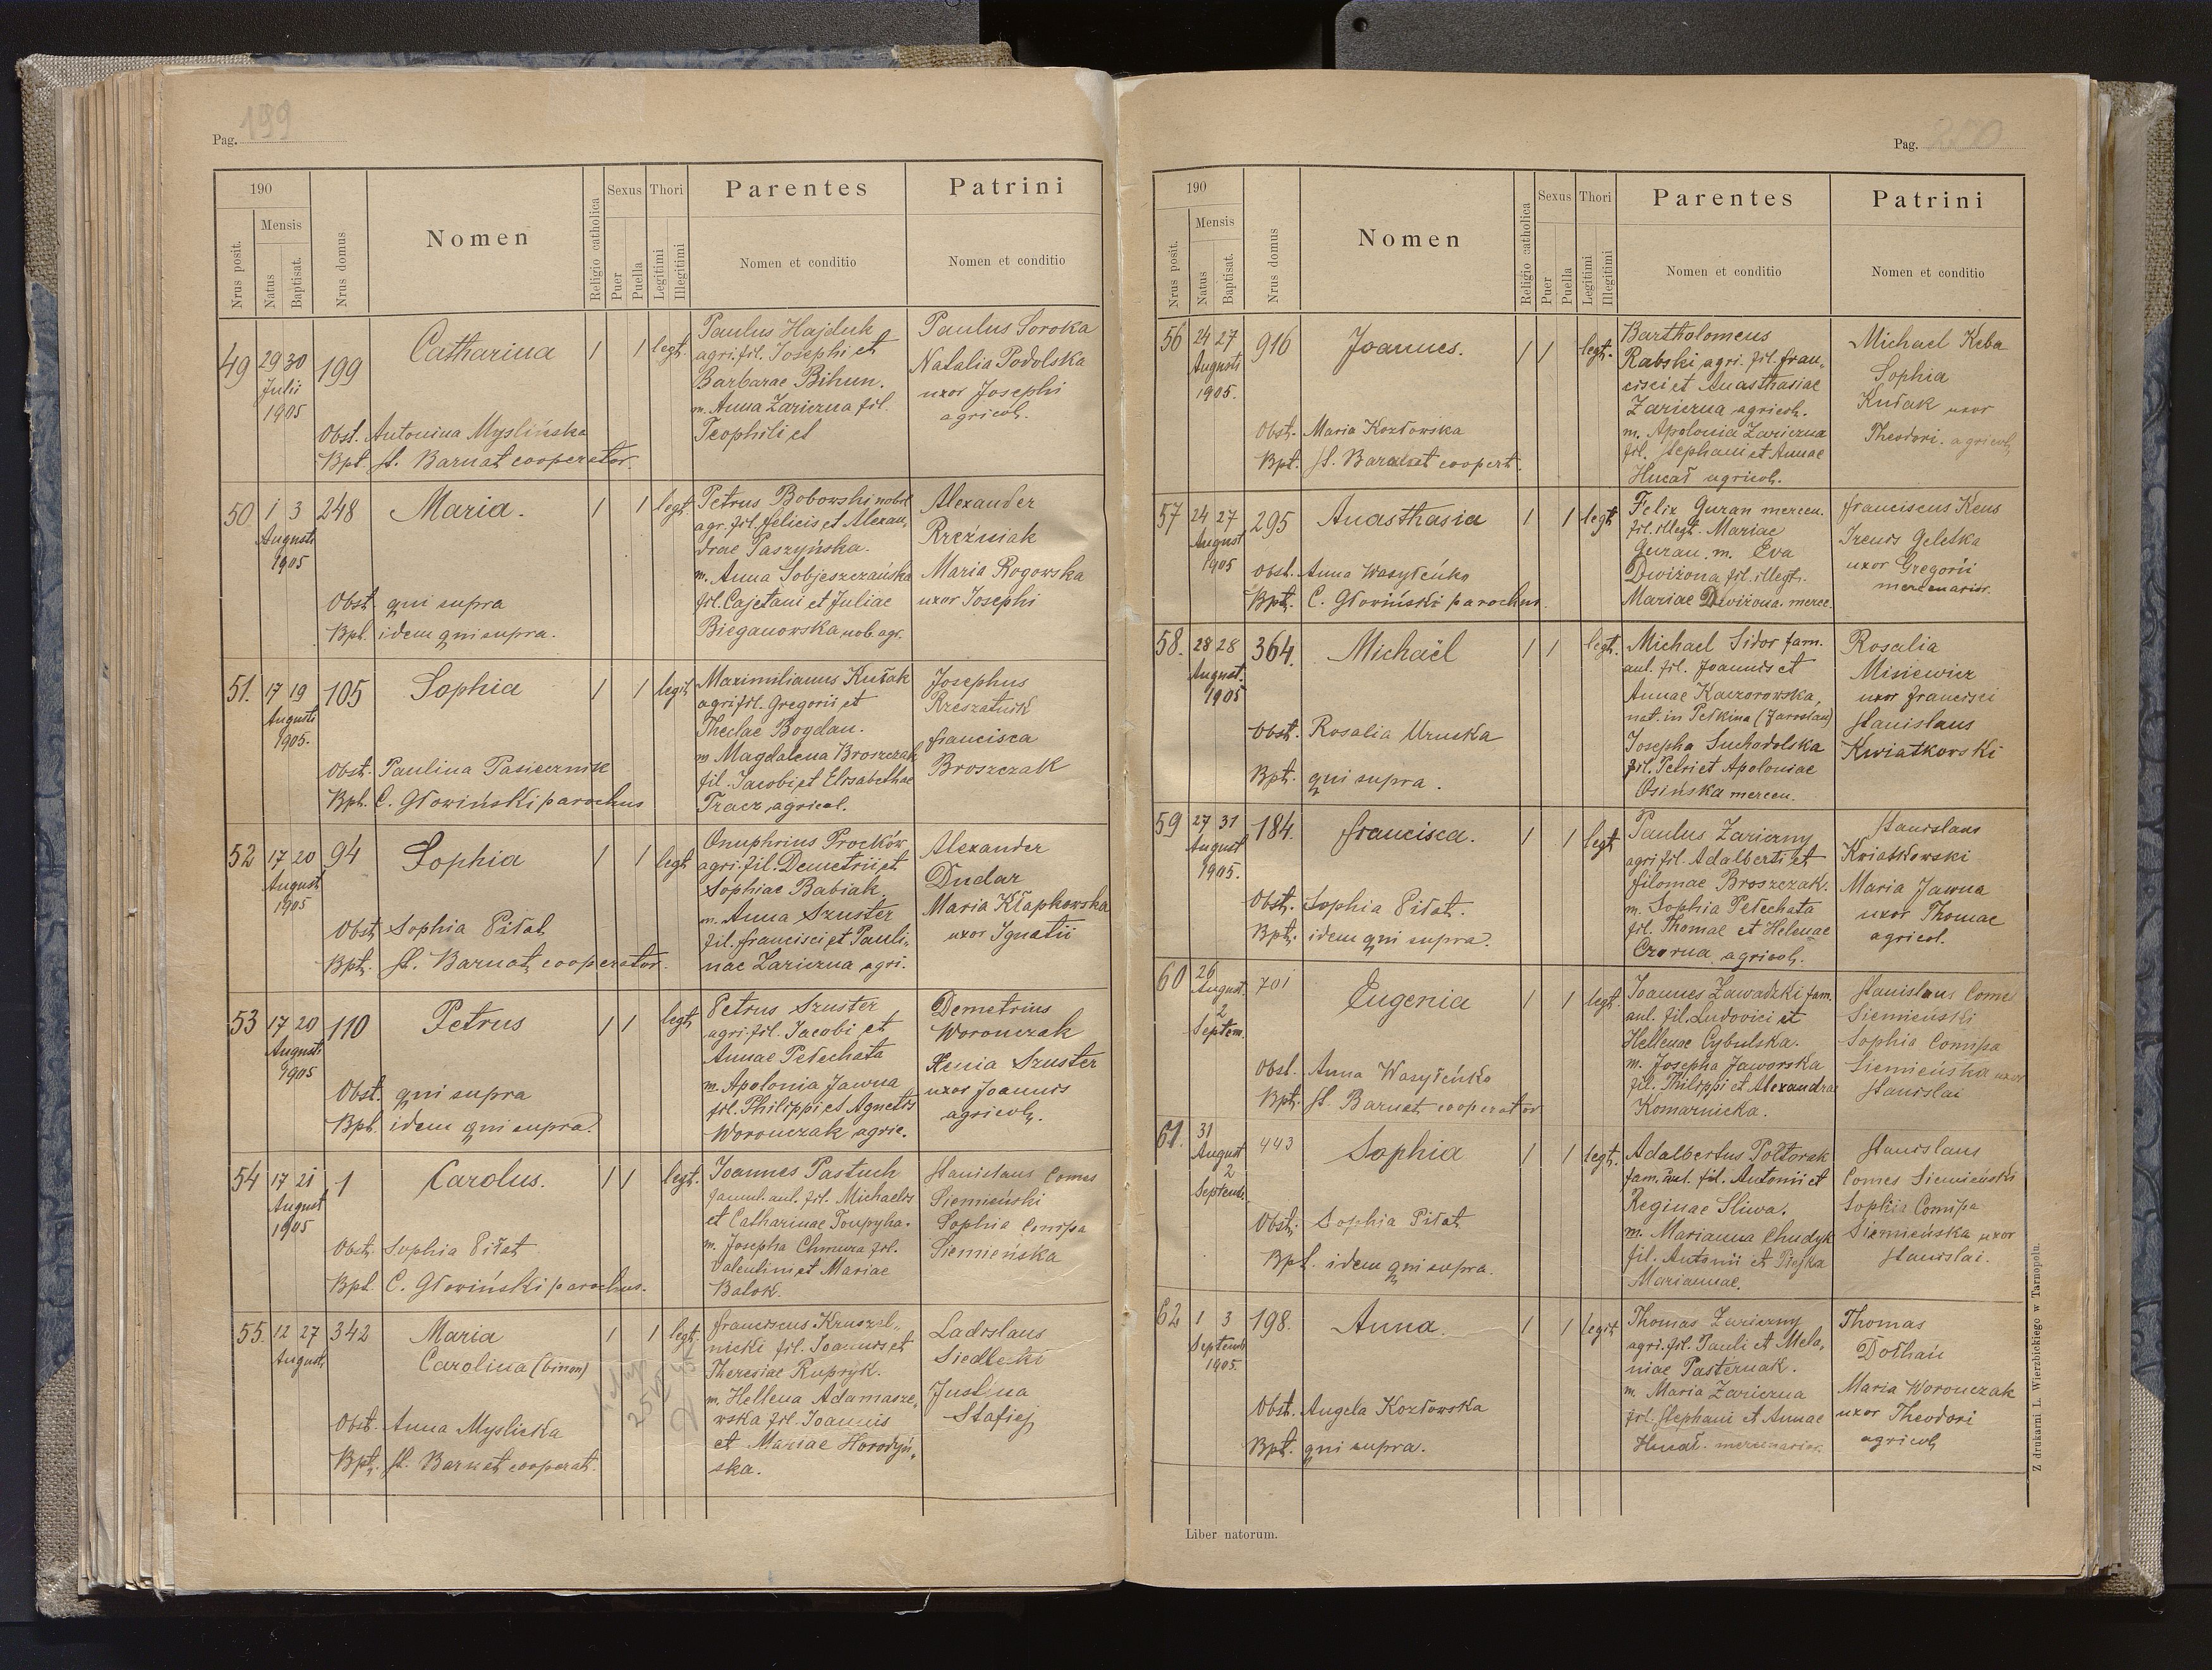 Pag. 199
190
Nrus posit.
Mensis
Natus
Baptisat.
Nrus domus
Nomen
Religio catholica
Sexus
Puer
Puella
Thori
Legitimi
Illegitimi
Parentes
Nomen et conditio
Patrini
Nomen et conditio
49 29 30 Julii 1905 199 Catharina 1 1 legt.
Obst. Antonina Myslińska
Bpt. St. Barnat cooperator.
Paulus Hajduk
agri. fil. Josephi et
Barbarae Bihun.
m. Anna Zarierna fil.
Teophili et
Paulus Soroka
Natalia Podolska
uxor Josephi
agricol.
50 1 3 Augusti 1905 248 Maria. 1 1 legt.
Obst. qui supra
Bpt. idem qui supra.
Petrus Bobowski nobil
agr. fil. Felicis et Alexan„
drae Paszyńska.
m. Anna Sobjeszczańska
fil. Cajetani et Juliae
Bieganowska nob. agr.
Alexander
Rzeźniak
Maria Rogowska
uxor Josephi
51. 17 19 Augusti 1905. 105 Sophia 1 1 legit
Obst. Paulina Pasicznik
Bpt. C. Głowiński parochus
Maximilianus Kułak
agri fil. Gregorii et
Theclae Bogdan.
m. Magdalena Broszczak
fil. Jacobi et Elisabethae
Tracz agricol.
Josephus
Rzeszatnik
Francisca
Broszczak
52 17 20 August 1905 94 Sophia 1 1 legt
Obst. Sophia Piłat
Bpt. St. Barnat cooperator.
Onuphrius Proćków
agri. fil. Demetrii et
Sophiae Babiak.
m. Anna Szuster
fil. Francisci et Pauli„
nae Zarierna agri.
Alexander
Dudar
Maria Kłapkowska
uxor Ignatii
53 17 20 Augusti 1905 110 Petrus 1 1 legt
Obst. qui supra
Bpt. idem qui supra.
Petrus Szuster
agri. fil. Jacobi et
Annae Pełechata
m. Apolonia Jawna
fil. Philippi et Agnetis
Woronczak agric.
Demetrius
Woronczak
Xenia Szuster
uxor Joannis
agricol.
54 17 21 August 1905 1 Carolus. 1 1 legt.
Obst. Sophia Piłat
Bpt. C. Głowiński parochus.
Joannes Pastuch
famul. aul. fil. Michaelis
et Catharinae Toupyha.
m. Josepha Chmura fil.
Valentini et Mariae
Batok.
Stanislaus Comes
Siemieński
Sophia Comissa
Siemieńska
55. 12 27 August 342 Maria 1 1 legt.
Carolina (binom)
Obst. Anna Myslicka
Bpt. St. Barnat cooperat.
Franciscus Kruszel„
nicki fil. Joannis et
Theresiae Rupryk.
m. Hellena Adamasze„
wska fil. Joannis
et Mariae Horodyń„
ska.
Ladislaus
Siedlecki
Justina
Stafiej
Pag. 200
190
Nrus posit.
Mensis
Natus
Baptisat.
Nrus domus
Nomen
Religio catholica
Sexus
Puer
Puella
Thori
Legitimi
Illegitimi
Parentes
Nomen et conditio
Patrini
Nomen et conditio
56 24 27 Augusti 1905. 916 Joannes. 1 1 legt.
Obst. Maria Kozłowska
Bpt. St. Baranat coopert.
Bartholomeus
Rabski agri. fil. Fran„
cisci et Anasthasiae
Zarierna agricol.
m. Apolonia Zarierna
fil. Stephani et Annae
Hucał agricol.
Michael Keba
Sophia
Kułak uxor
Theodori. agricol.
57 24 27 August 1905 295 Anasthasia 1 1 legt
Obst. Anna Wasyłeńko
Bpt. C. Głowiński parochus.
Felix Guran mercen.
fil. illegt. Mariae
Guran. m. Eva
Dwiżona fil. illegt.
Mariae Dwiżona. merce.
Franciscus Kens
Irenis Geletka
uxor Gregorii
mercenarior.
58. 28 28 August. 1905 364. Michaël 1 1 legt.
Obst. Rosalia Uruska
Bpt. qui supra.
Michael Sidor fam.
aul. fil. Joannis et
Annae Kaczorowska,
nat. in Pełkina (Jaroslau)
Josepha Suchodolska
fil. Petri et Apoloniae
Osińska mercen.
Rosalia
Misiewicz
uxor Francisci
Stanislaus
Kwiatkowski
59 27 31 August 1905. 184. Francisca. 1 1 legt
Obst. Sophia Piłat.
Bpt. idem qui supra.
Paulus Zarierny
agri fil. Adalberti et
Filomae Broszczak.
m. Sophia Pełechata
fil. Thomae et Helenae
Czorna agricol.
Stanislaus
Kwiatkowski
Maria Jawna
uxor Thomae
agricol.
60 26 August. 2 Septem. 701 Eugenia 1 1 legt
Obst. Anna Wasyłeńko
Bpt. St. Barnat cooperator
Joannes Zawadzki fam.
aul. fil. Ludovici et
Hellenae Cybulska.
m. Josepha Jaworska
fil. Philippi et Alexandrae
Komarnicka.
Stanislaus Comes
Siemieński
Sophia Comissa
Siemieńska uxor
Stanislai
61. 31 August 2 Septemb. 443 Sophia 1 1 legt.
Obst. Sophia Piłat
Bpt. idem qui supra.
Adalbertus Półtorak
fam. aul. fil. Antonii et
Reginae Sliwa.
m. Marianna Chudyk
fil. Antonii et
Mariannae.
Stanislaus
Comes Siemieński
Sophia Comissa
Siemieńska uxor
Stanislai.
62 1 3 Septemb 1905. 198. Anna. 1 1 legit
Obst. Angela Kozłowska
Bpt. qui supra.
Thomas Zarierny
agri. fil. Pauli et Mela„
niae Pasternak.
m. Maria Zarierna
fil. Stephani et Annae
Hucał. mercenarior.
Thomas
Dołhań
Maria Woronczak
uxor Theodori
agricol.
Liber natorum.
Z drukarni L. Wierzbickiego w Tarnopolu.